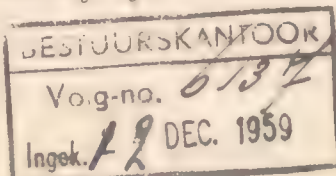 BESTUURSKANTOOR
Volg-no. 6137
Ingek. 12 DEC. 1959